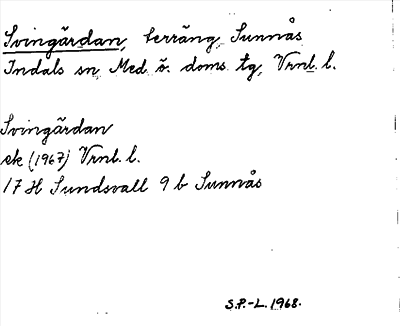 Svingärdan, terräng, Sunnås
Indals sn, Med. ö. doms. tg, Vrnl. l.
Svingärdan
ek (1967) Vrnl. l.
17 H Sundsvall 9 b Sunnås
S.P.-L. 1968.